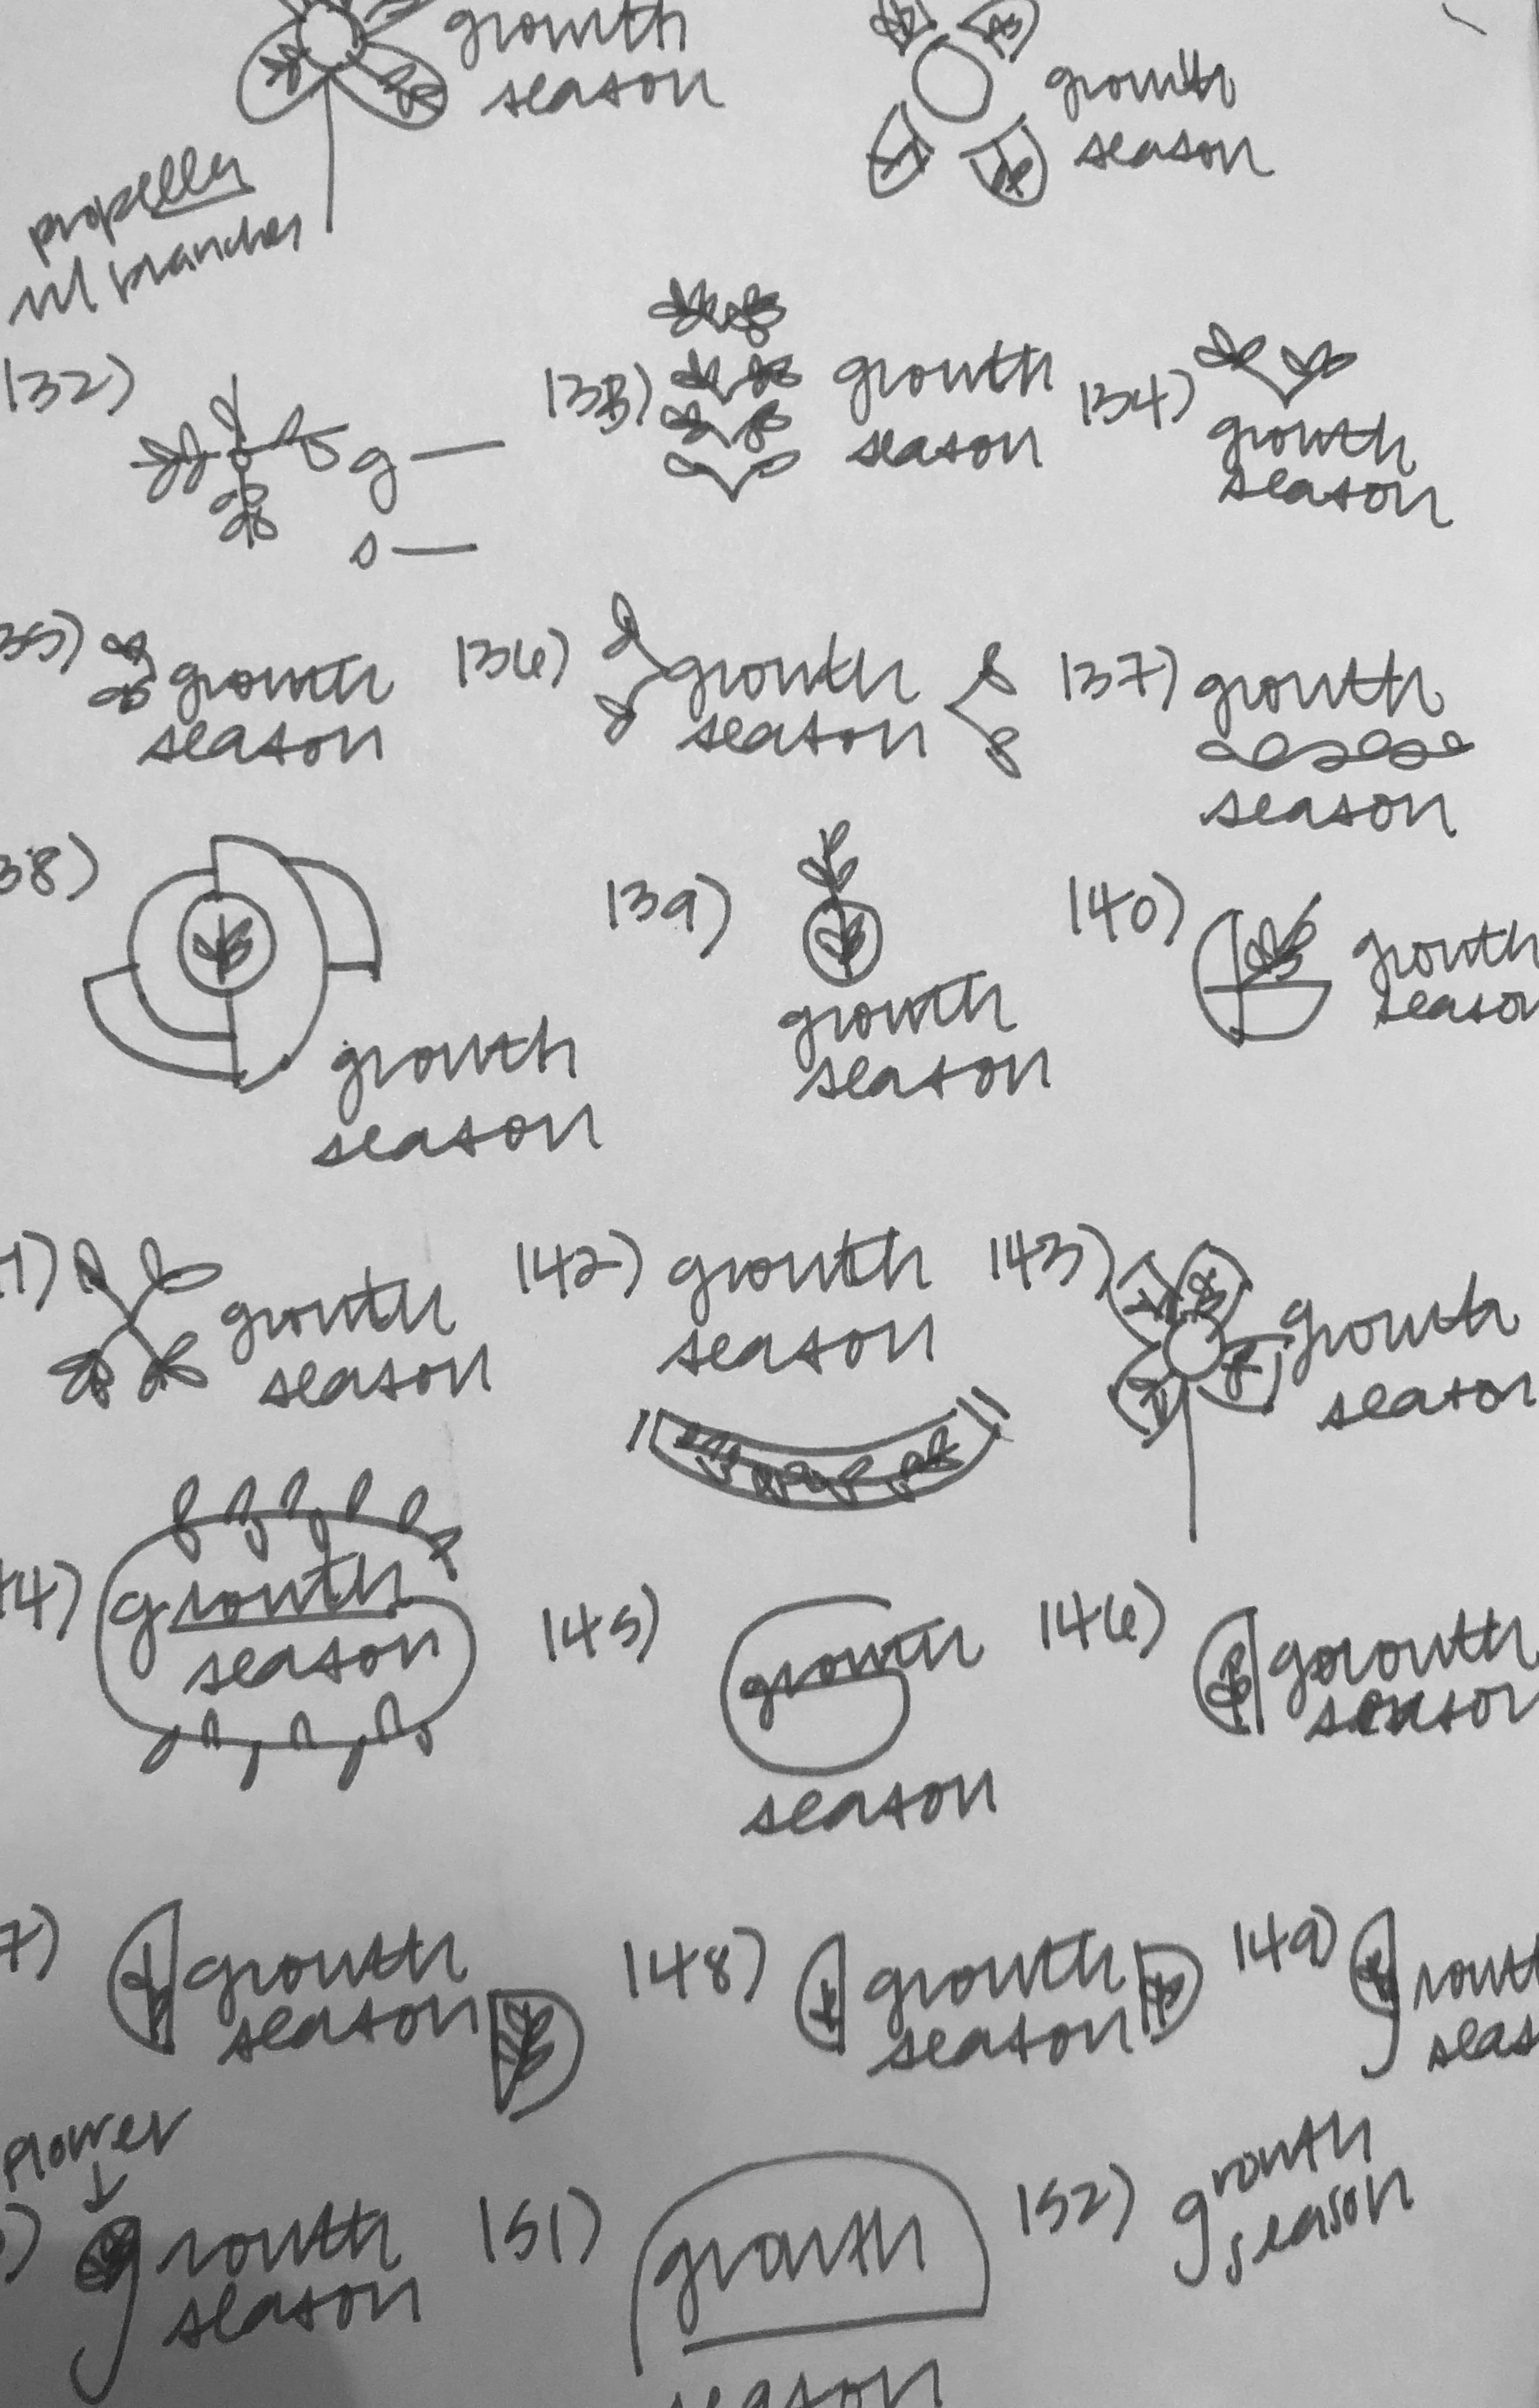 growth
season
growth
season
propeller
w/ branches
132)
g
s
133)
growth
season
134)
growth
season
35)
growth
season
136)
growth
season
137)
growth
season
38)
growth
season
139)
growth
season
140)
growth
seaso
1)
growth
season
142)
growth
season
143)
growth
season
4)
growth
season
145)
growth
season
146)
growth
season
7)
growth
season
148)
growth
season
149)
growt
seas
flower
)
growth
season
151)
growth
season
152)
growth
season